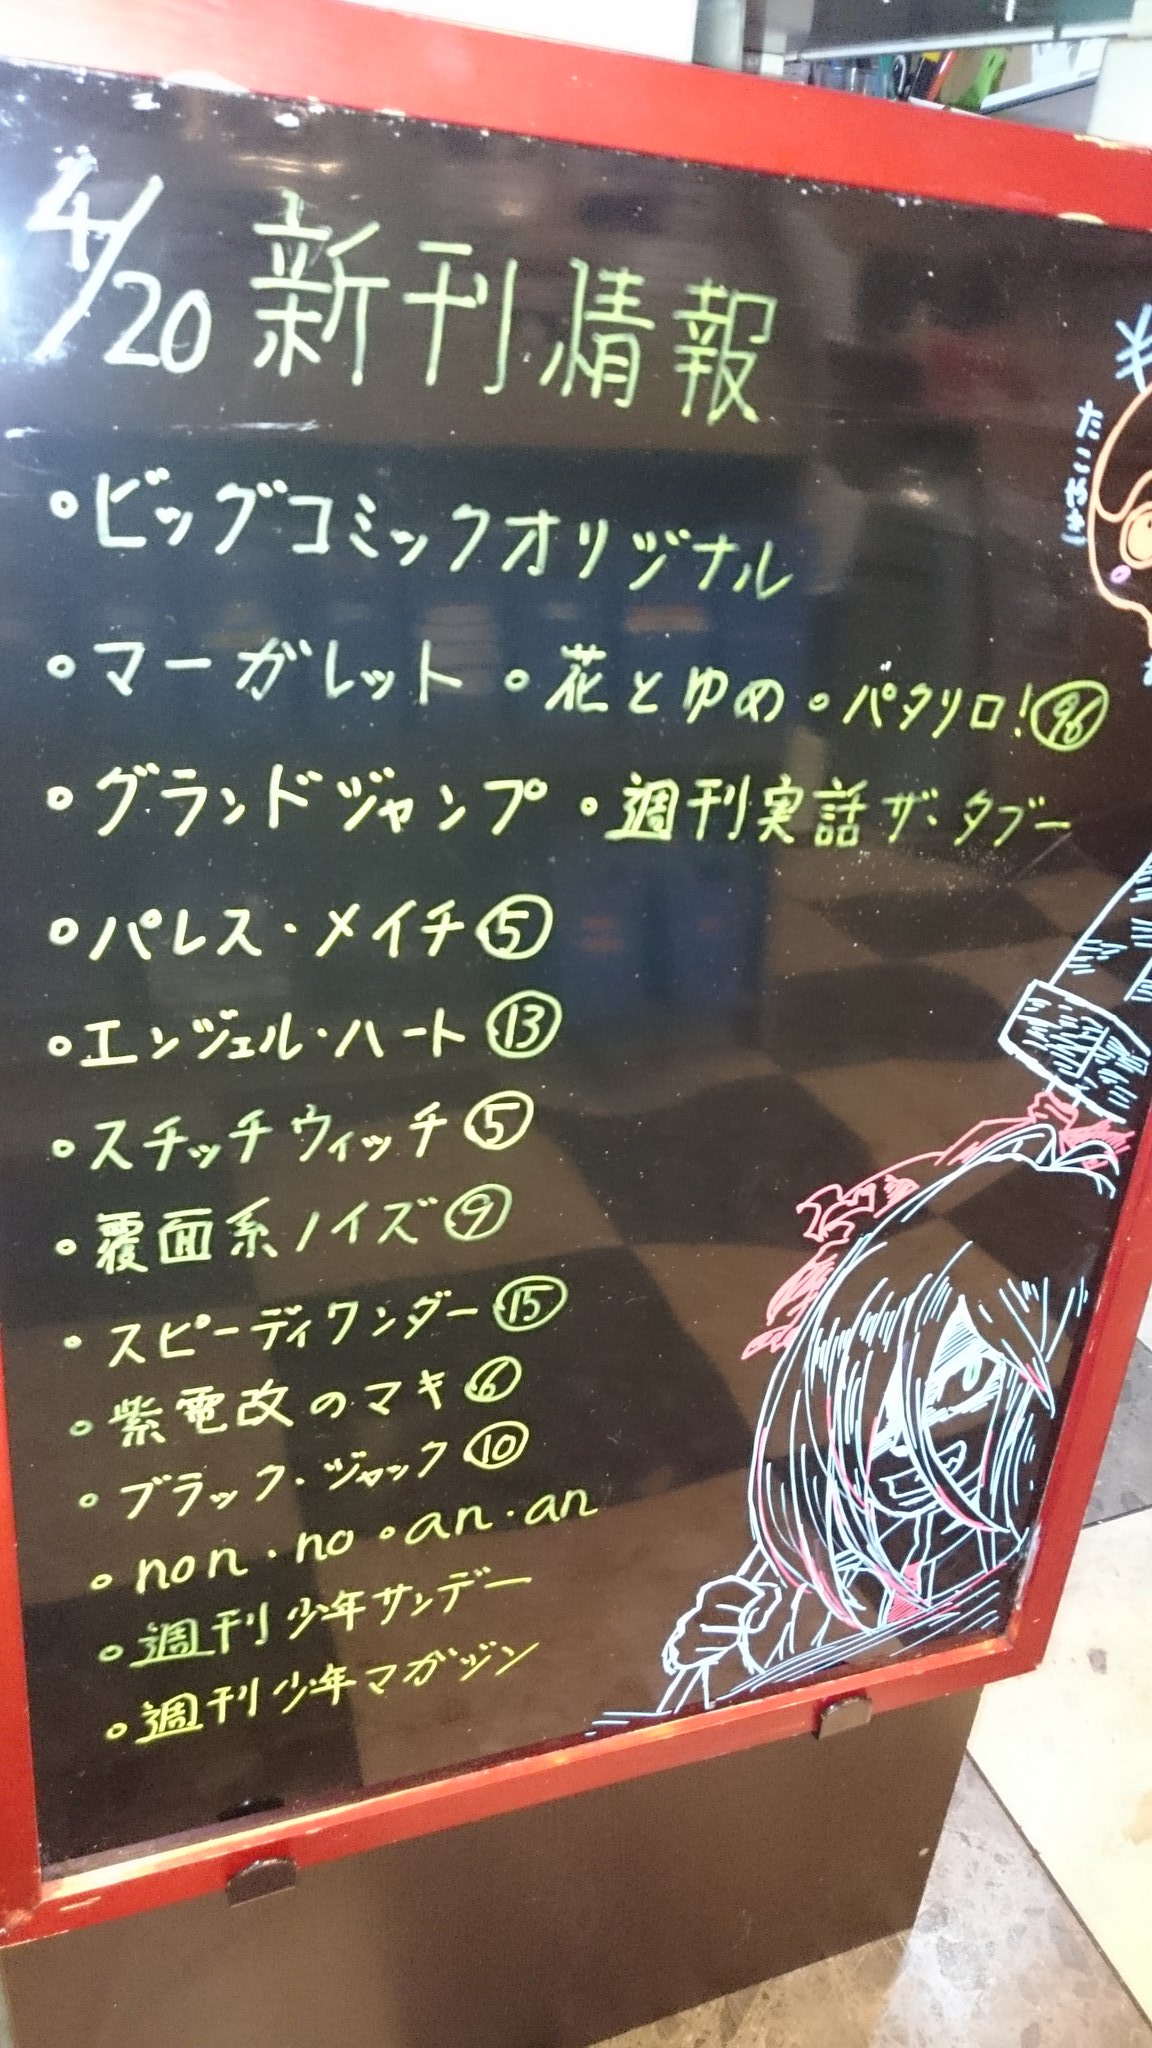 4/20 新刊情報
たこやき
。ビッグコミックオリジナル
。マーガレット 。花とゆめ 。パタリロ!㊈
。グランドジャンプ 。週刊実話ザ・タブー
。パレス・メイヂ⑤
。エンジェル・ハート⑬
。スチッチウィッチ⑤
。覆面系ノイズ⑨
。スピーディワンダー⑮
。紫電改のマキ⑥
。ブラック・ジャック⑩
。non・no 。an・an
。週刊少年サンデー
。週刊少年マガジン